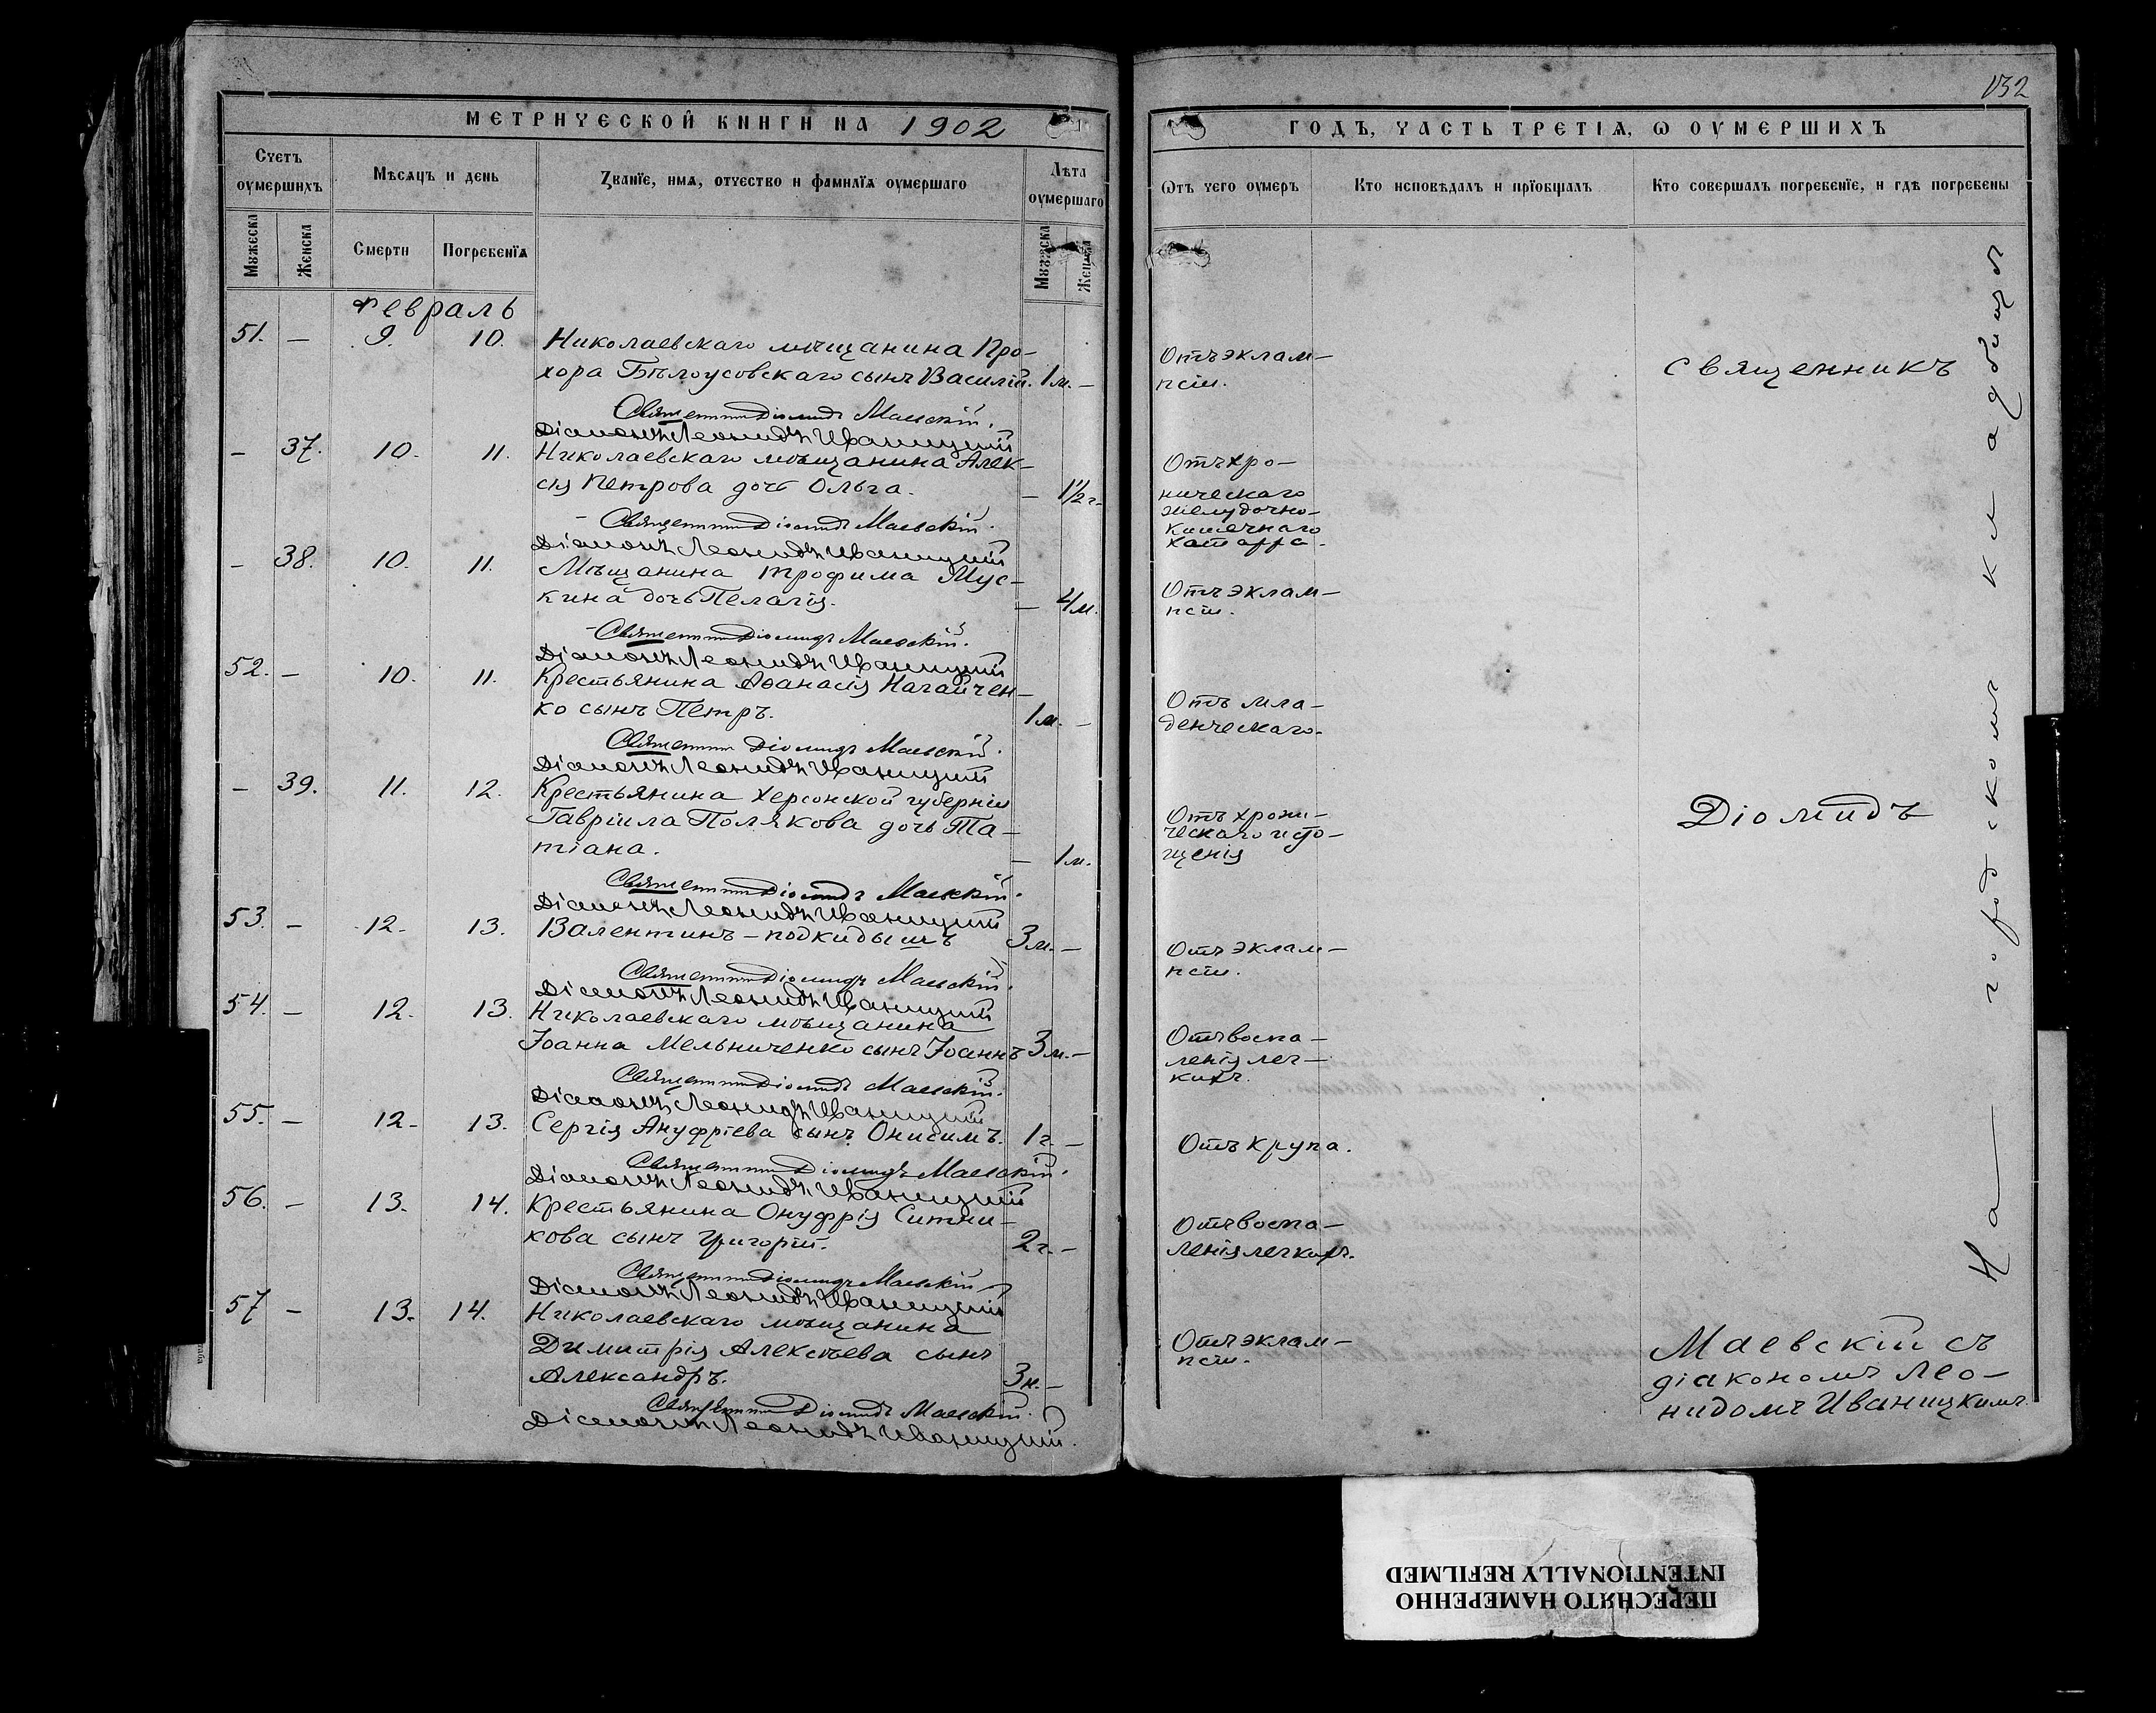 132
МЕТРИЧЕСКОЙ КНИГИ НА 1902
ГОДЪ, ЧАСТЬ ТРЕТІЯ, Ѡ ОУМЕРШИХЪ
Счетъ оумершихъ
Мѣсяцъ и день
Званїе, имя, отчество и фамилїя оумершаго
Лѣта оумершаго
Ѿтъ чего оумеръ
Кто исповѣдалъ и прїобщалъ
Кто совершалъ погребенїе, и гдѣ погребены
Мужеска
Женска
Смерти
Погребенїя
Мужеска
Женска
Февраль
51. — 9. 10. Николаевскаго мѣщанина Про-
хора Бѣлоусовскаго сынъ Василій. 1 м. —
Отъ эклам-
псіи.
Священникъ Діомидъ Маевскій.
Діаконъ Леонидъ Иваницкій
— 37. 10. 11. Николаевскаго мѣщанина Алек-
сія Петрова дочь Ольга. — 1½ г.
Отъ хро-
ническаго
желудочно-
кишечнаго
катарра.
Священникъ Діомидъ Маевскій.
Діаконъ Леонидъ Иваницкій
— 38. 10. 11. Мѣщанина Трофима Мус-
кина дочь Пелагія. — 4 м.
Отъ эклам-
псіи.
Священникъ Діомидъ Маевскій.
Діаконъ Леонидъ Иваницкій
52. — 10. 11. Крестьянина Аѳанасія Нагайчен-
ко сынъ Петръ. 1 м. —
Отъ мла-
денческаго.
Священникъ Діомидъ Маевскій.
Діаконъ Леонидъ Иваницкій
— 39. 11. 12. Крестьянина Херсонской губерніи
Гавріила Полякова дочь Та-
тіана. — 1 м.
Отъ хрони-
ческаго исто-
щенія
Священникъ Діомидъ Маевскій.
Діаконъ Леонидъ Иваницкій
53. — 12. 13. Валентинъ - подкидышъ 3 м. —
Отъ эклам-
псіи.
Священникъ Діомидъ Маевскій.
Діаконъ Леонидъ Иваницкій
54. — 12. 13. Николаевскаго мѣщанина
Іоанна Мельниченко сынъ Іоаннъ 3 м. —
Отъ воспа-
ленія лег-
кихъ.
Священникъ Діомидъ Маевскій.
Діаконъ Леонидъ Иваницкій
55. — 12. 13. Сергія Ануфріева сынъ Онисимъ. 1 г. —
Отъ крупа.
Священникъ Діомидъ Маевскій.
Діаконъ Леонидъ Иваницкій
56. — 13. 14. Крестьянина Онуфрія Ситни-
кова сынъ Григорій. 2 г. —
Отъ воспа-
ленія легкихъ.
Священникъ Діомидъ Маевскій
Діаконъ Леонидъ Иваницкій
57 — 13. 14. Николаевскаго мѣщанина
Димитрія Алексѣева сынъ
Александръ. 3 н. —
Отъ эклам-
псіи.
Священникъ Діомидъ Маевскій.
Діаконъ Леонидъ Иваницкій.
священникъ
Діомидъ
Маевскій съ
діакономъ Лео-
нидомъ Иваницкимъ.
На городскомъ кладбищѣ
ПЕРЕСНЯТО НАМЕРЕННО
INTENTIONALLY REFILMED